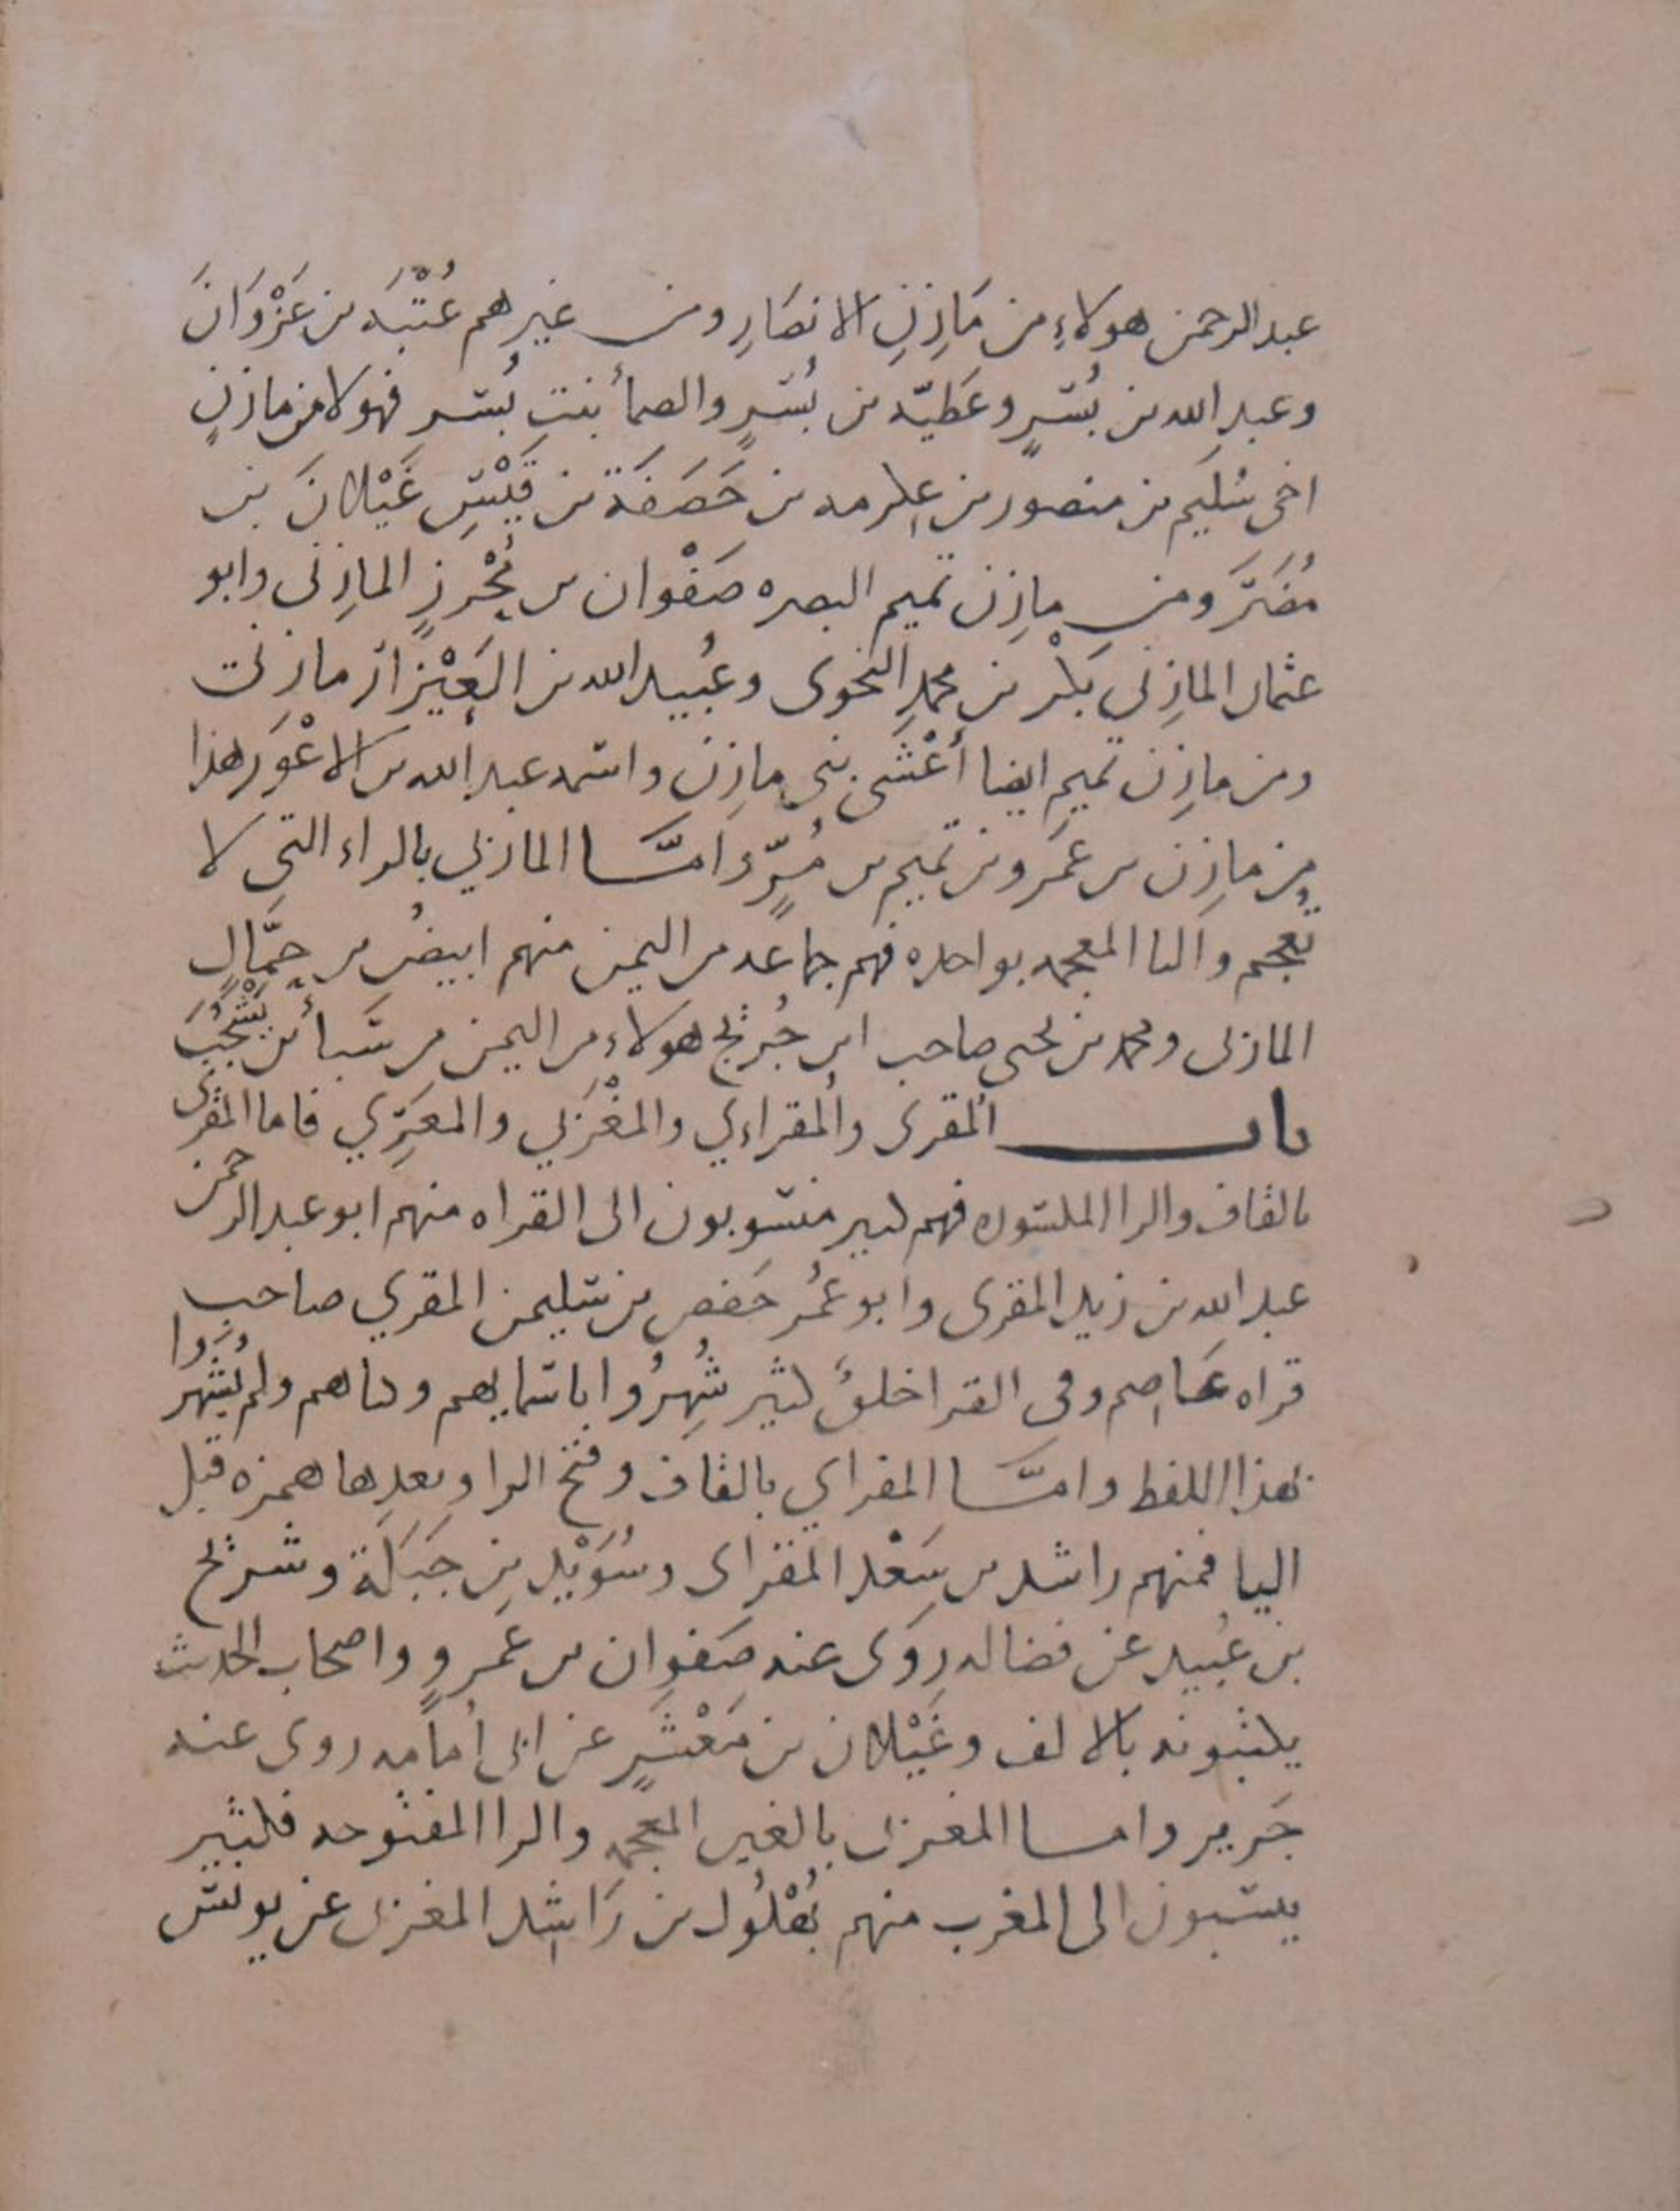 عبد الرحمن هولاءِ من مَازِنِ الانصَارِ ومن غيرِهم عُتْبَه بن غَزْوَانَ
وعبدِ الله بن بُسْرٍ وعَطيّه بن بُسْرٍ والصمأ بنتِ بُسرِ فهولا من مازنٍ
اخى سُليم بن منصور بن عِكرمه بن خَصَفَة بن قَيْسِ عَيْلانَ بن
مُضَرَ ومن مازِن تميم البصره صَفْوان بن مُحْرزٍ المازِنى وابو
عثمان المازِنى بَكْر بن محمدٍ النحوى وعُبيد الله بن العَيْزار مازنى
ومن مازِن تميمٍ ايضا أَعْشَى بنى مازِن واسمه عبد الله بن الاعْوَر هذا
من مازِن بن عَمرو بن تميم بن مُرٍّ وامَّا الماربي بالراء التى لا
تُعجم والبا المعجمه بواحده فهم جماعه من اليمن منهم ابيضُ بن حمَّالٍ
الماربى ومحمد بن يحيى صاحب ابن جُريج هولاءِ من اليمن من سَبأ بن يَشْجُبَ
باب المُقرى والمُقراءي والمَغْرَبي والمعَزِي فاما المقرى
بالقاف والرا المكسوره فهم كثير منسوبون الى القراه منهم ابو عبد الرحمن
عبد الله بن زيد المقرى وابو عُمَر حَفص بن سليمن المقري صاحب
قراه عَاصِم وفى القرا خلقٌ كثير شُهِرُوا باسمايهم وكناهم ولم يُشْهَروا
بهذا اللفظ وامَّا المقراي بالقاف وفتح الرا وبعدها همزه قبل
اليا فمنهم راشد بن سَعْد المقراى وسُوَيْد بن جَبَلَة وشريح
بن عُبيد عن فضاله روَى عنه صَفوان بن عَمروٍ واصحاب الحديث
يكتبونه بالالف وغَيْلان بن مَعْشَرٍ عن ابى أمامه روى عنه
جَرير واما المغربى بالغين المعجمه والرا المفتوحه فكثير
ينسبون الى المغرب منهم بُهْلُول بن رَاشِد المغربى عن يونس